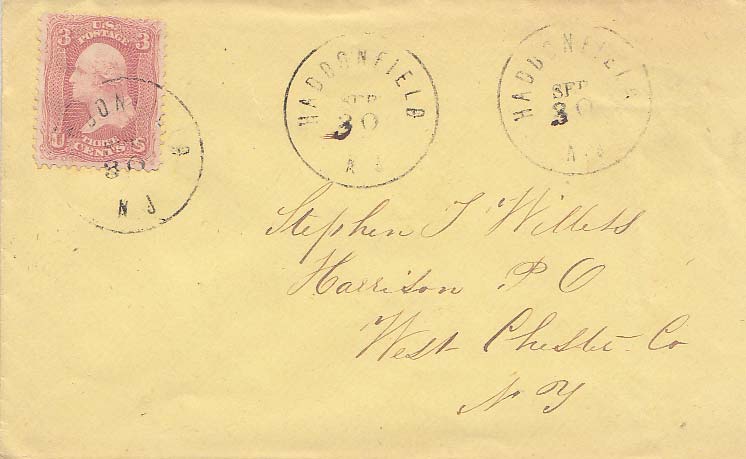 3 U.S. 3
POSTAGE
CENTS
HADDONFIELD
30
N J
HADDONFIELD
SEP
30
N J
HADDONFIELD
SEP
30
N J
Stephen T Willets
Harrison P O
West Chester Co
N Y